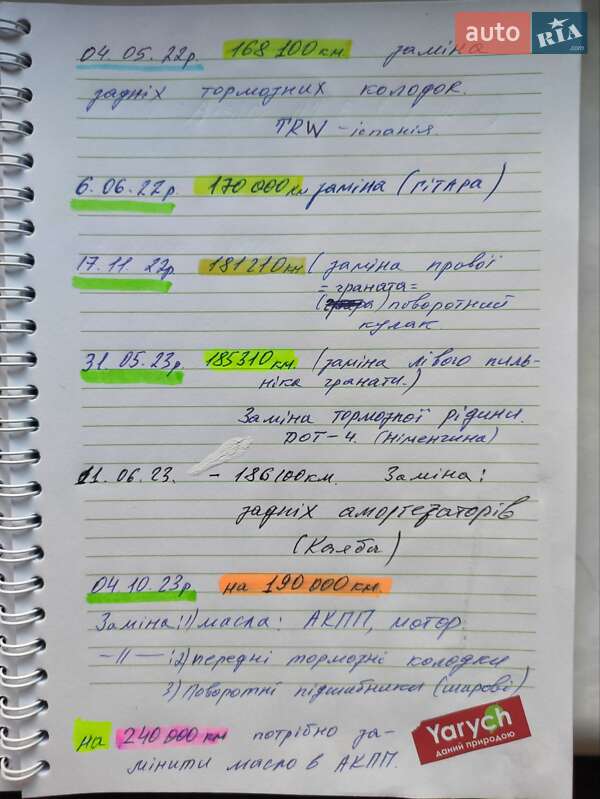 auto RIA .com
04.05.22р. 168 100км. заміна
задніх тормозних колодок.
TRW - іспанія.
6.06.22р. 170 000км заміна (гітара)
17.11.22р 181210км (заміна правої
= граната =
поворотний
кулак
31.05.23р. 185310км. (заміна лівого пиль-
ніка гранати.)
Заміна тормозної рідини.
DOT-4. (Німенчина)
11.06.23. - 186100км. Заміна:
задніх амортезаторів
(Каяба)
04.10.23р на 190 000км.
Заміна: 1) масла: АКПП, мотор
-//- : 2) передні тормозні колодки
3) Поворотні підшибники (шарові)
на 240 000 км потрібно за-
мінити масло в АКПП.
Yarych
даний природою